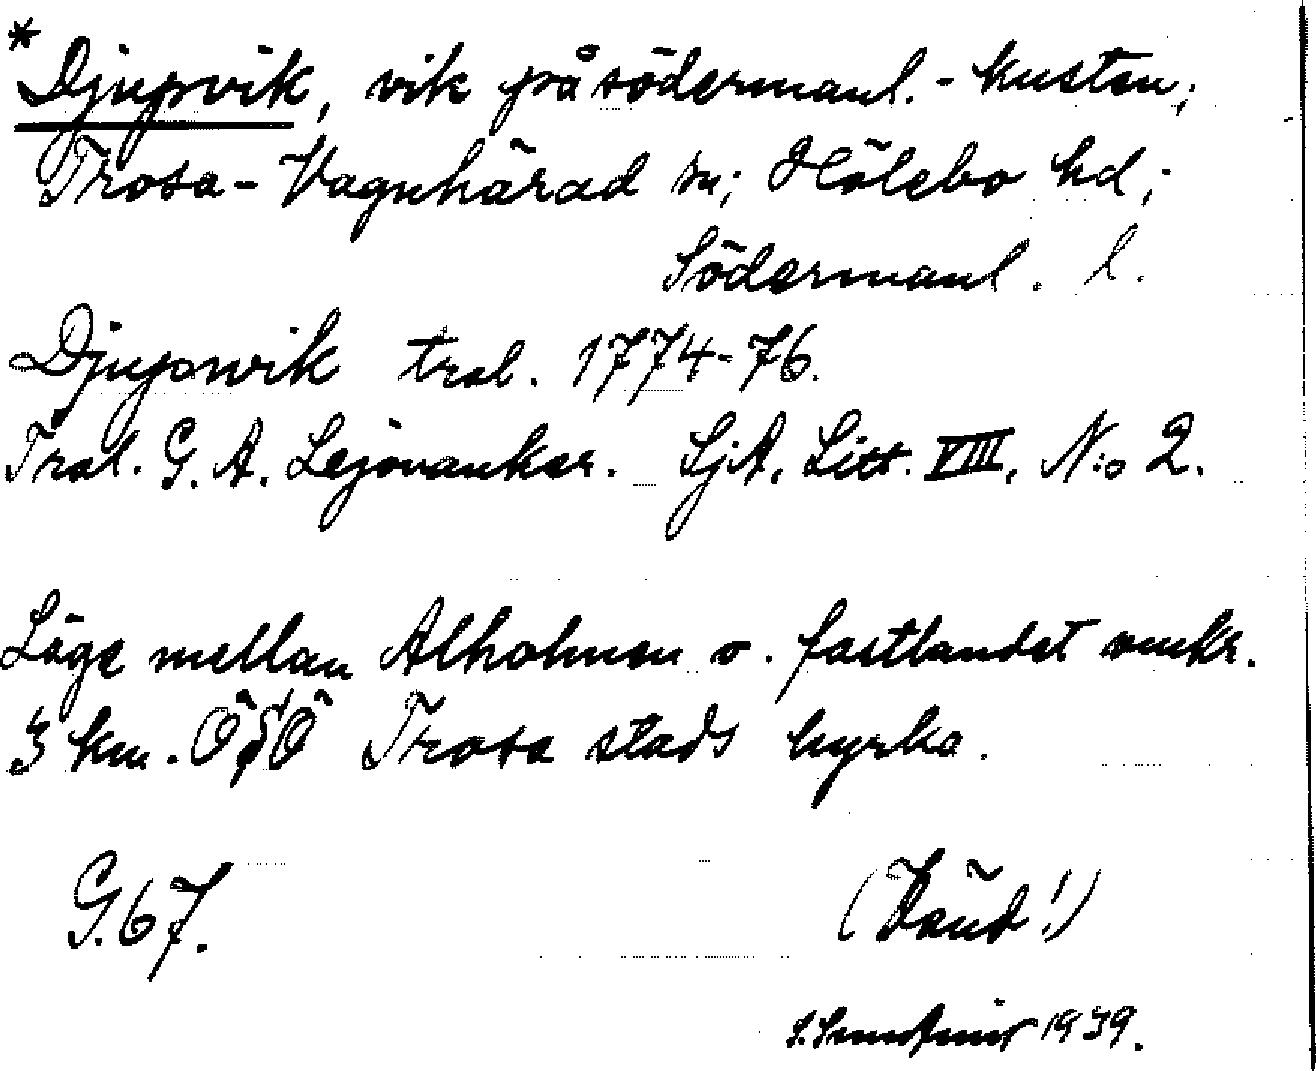 *Djupvik, vik på södermanl.-kusten;
Trosa-Vagnhärad sn; Hölebo hd;
Södermanl. l.
Djupwik tral. 1774-76.
Tral. G. A. Lejonanker. SjA, Litt. VIII, N:o 2.
Läge mellan Alholmen o. fastlandet omkr.
3 km. ÖSÖ Trosa stads kyrka.
G. 67.
(Vänd!)
1939.